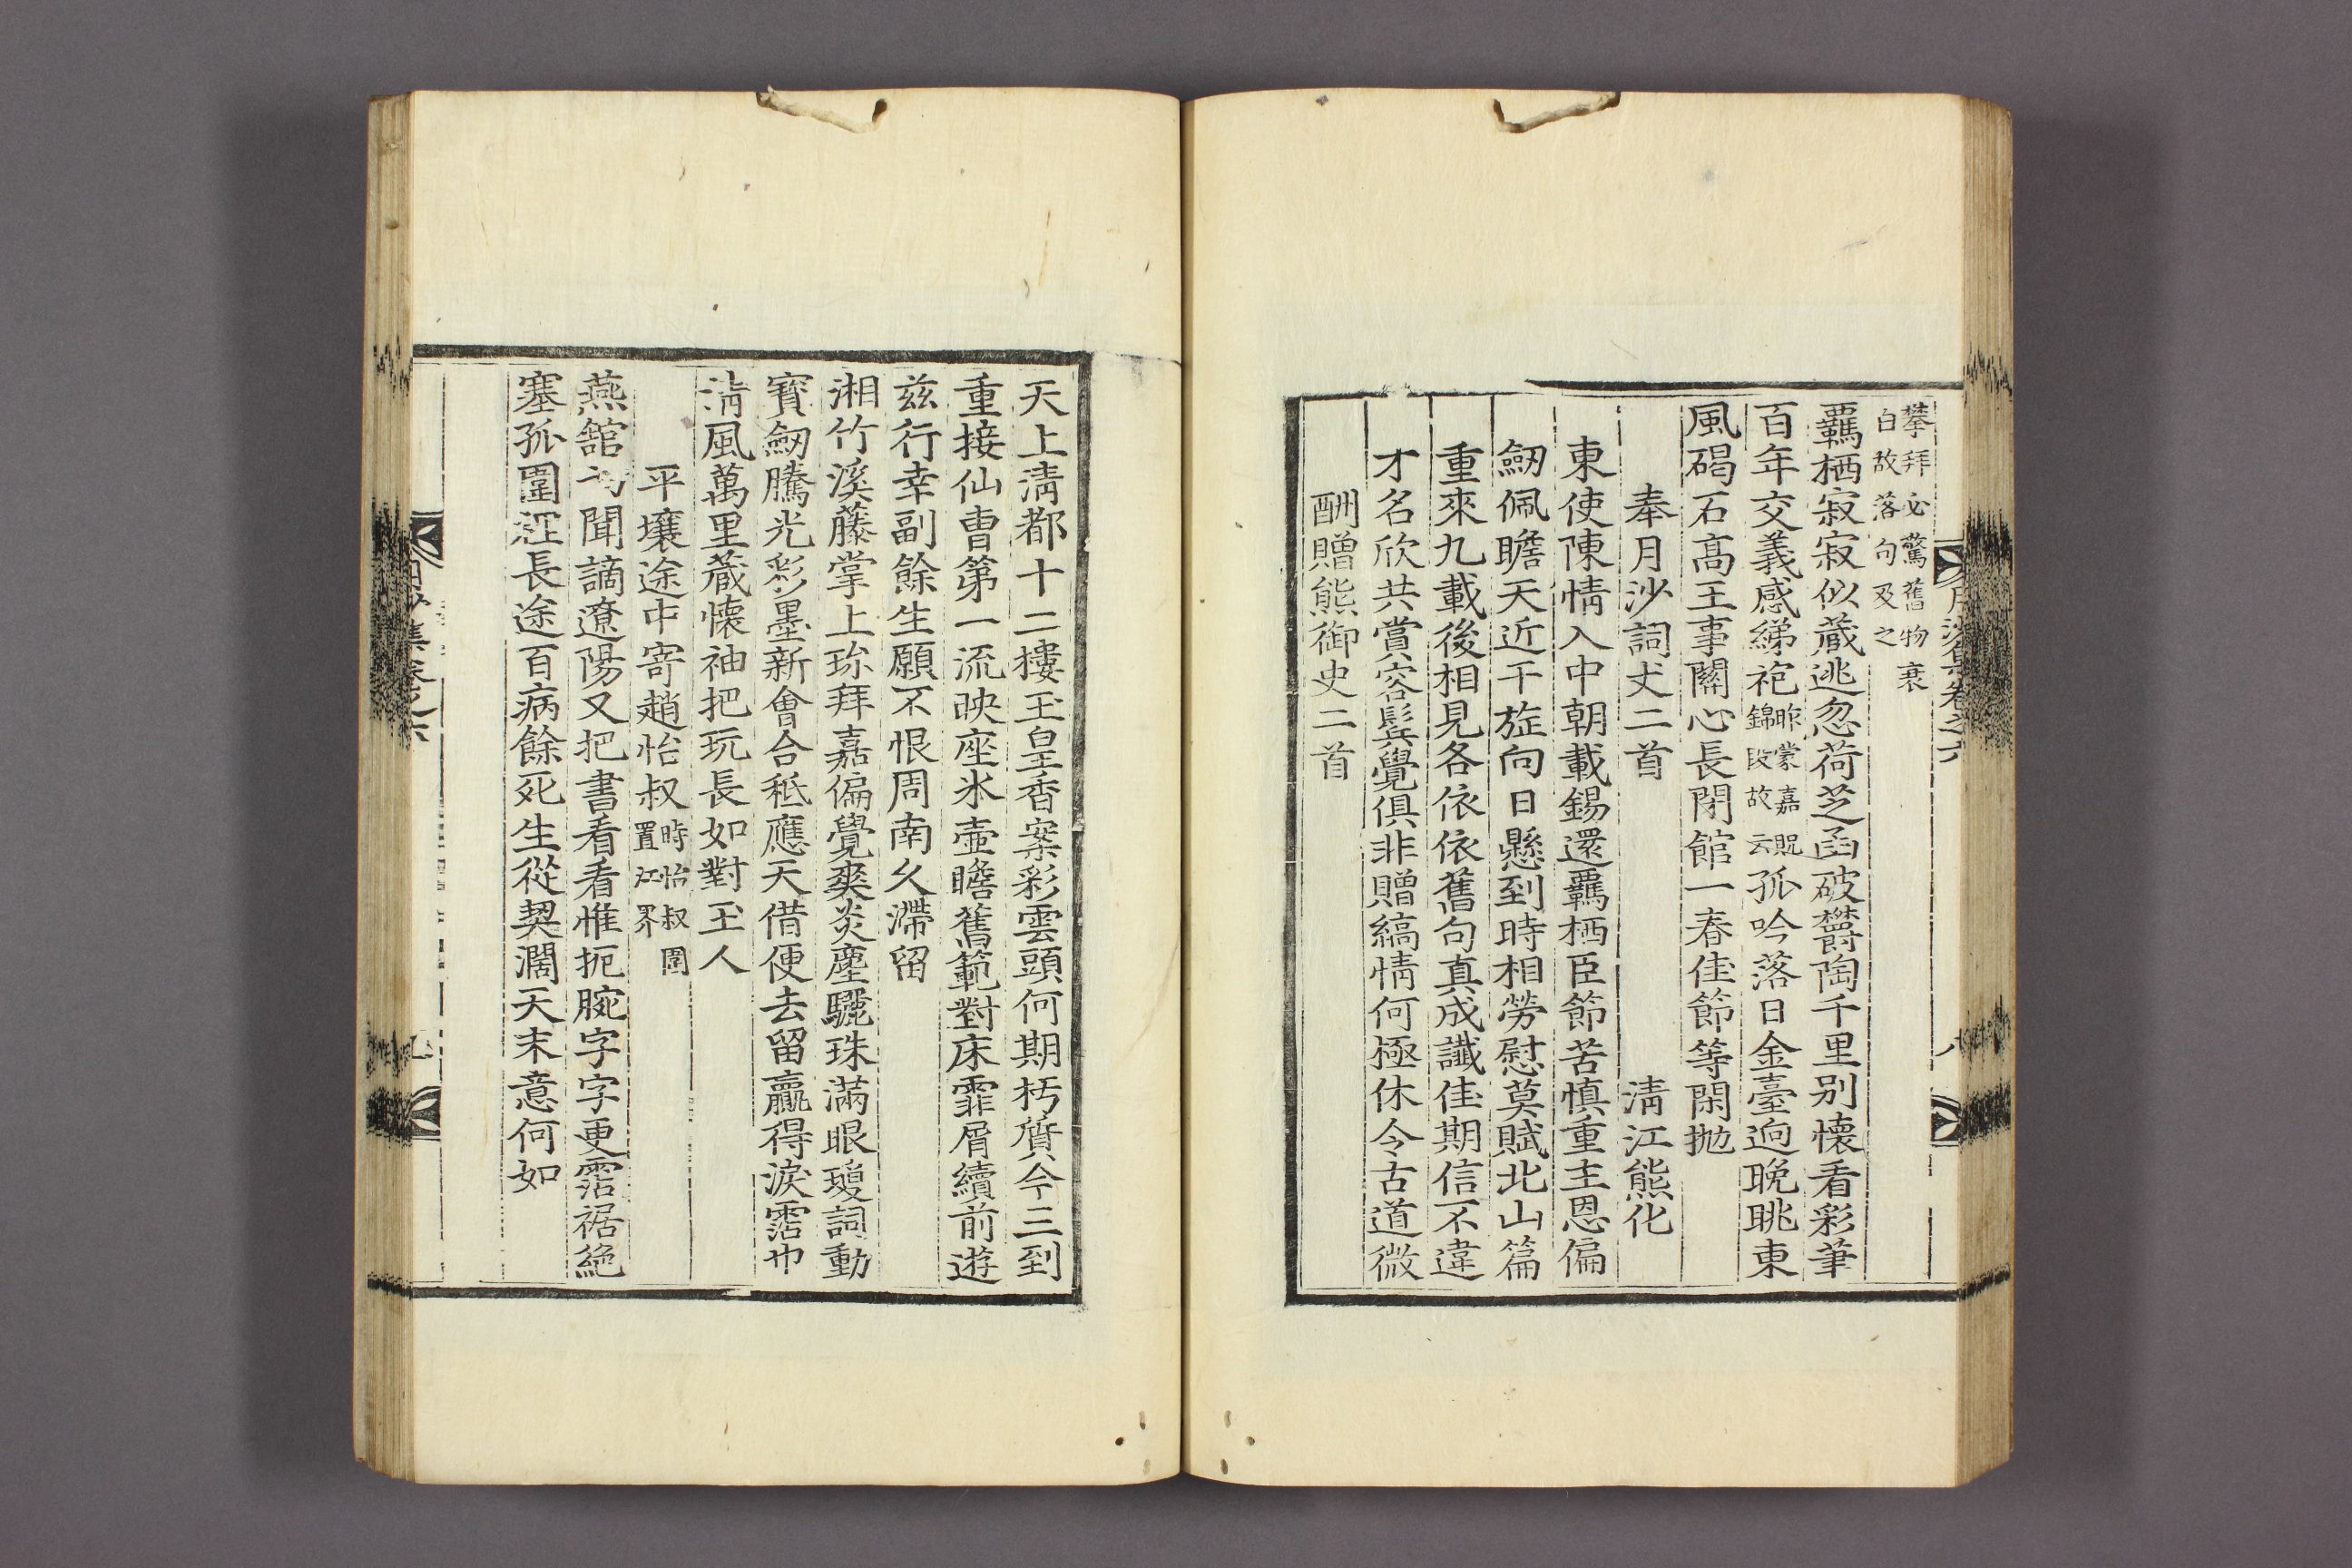 月沙集卷之六
八
攀拜必驚舊物衰
白故落句及之
羈栖寂寂似蔵逃忽荷芝函破欝陶千里别懷看彩筆
百年交義感綈袍昨蒙嘉貺錦段故云孤吟落日金臺逈晚眺東
風碣石高王事關心長閉館一春佳節等閑抛
奉月沙詞丈二首 淸江熊化
東使陳情入中朝載錫還羈栖臣節苦慎重主恩偏
劒佩瞻天近干旋向日懸到時相勞慰莫賦北山篇
重來九載後相見各依依舊句真成讖佳期信不違
才名欣共賞容鬂覺俱非贈縞情何極休令古道微
酬贈熊御史二首
天上淸都十二樓玉皇香案彩雲頭何期朽質今三到
重接仙曺第一流映座氷壷瞻舊範對床霏屑續前遊
兹行幸副餘生願不恨周南久滯留
湘竹溪藤掌上珎拜嘉偏覺爽炎塵驪珠滿眼瓊詞動
寳劒騰光彩墨新會合秪應天借便去留贏得淚霑巾
淸風萬里蔵懷袖把玩長如對玉人
平壤途中寄趙怡叔時怡叔圍置江界
燕舘聞謫遼陽又把書看看惟扼腕字字更霑裾絶
塞孤圍迋長途百病餘死生從契濶天末意何如
月沙集卷之六